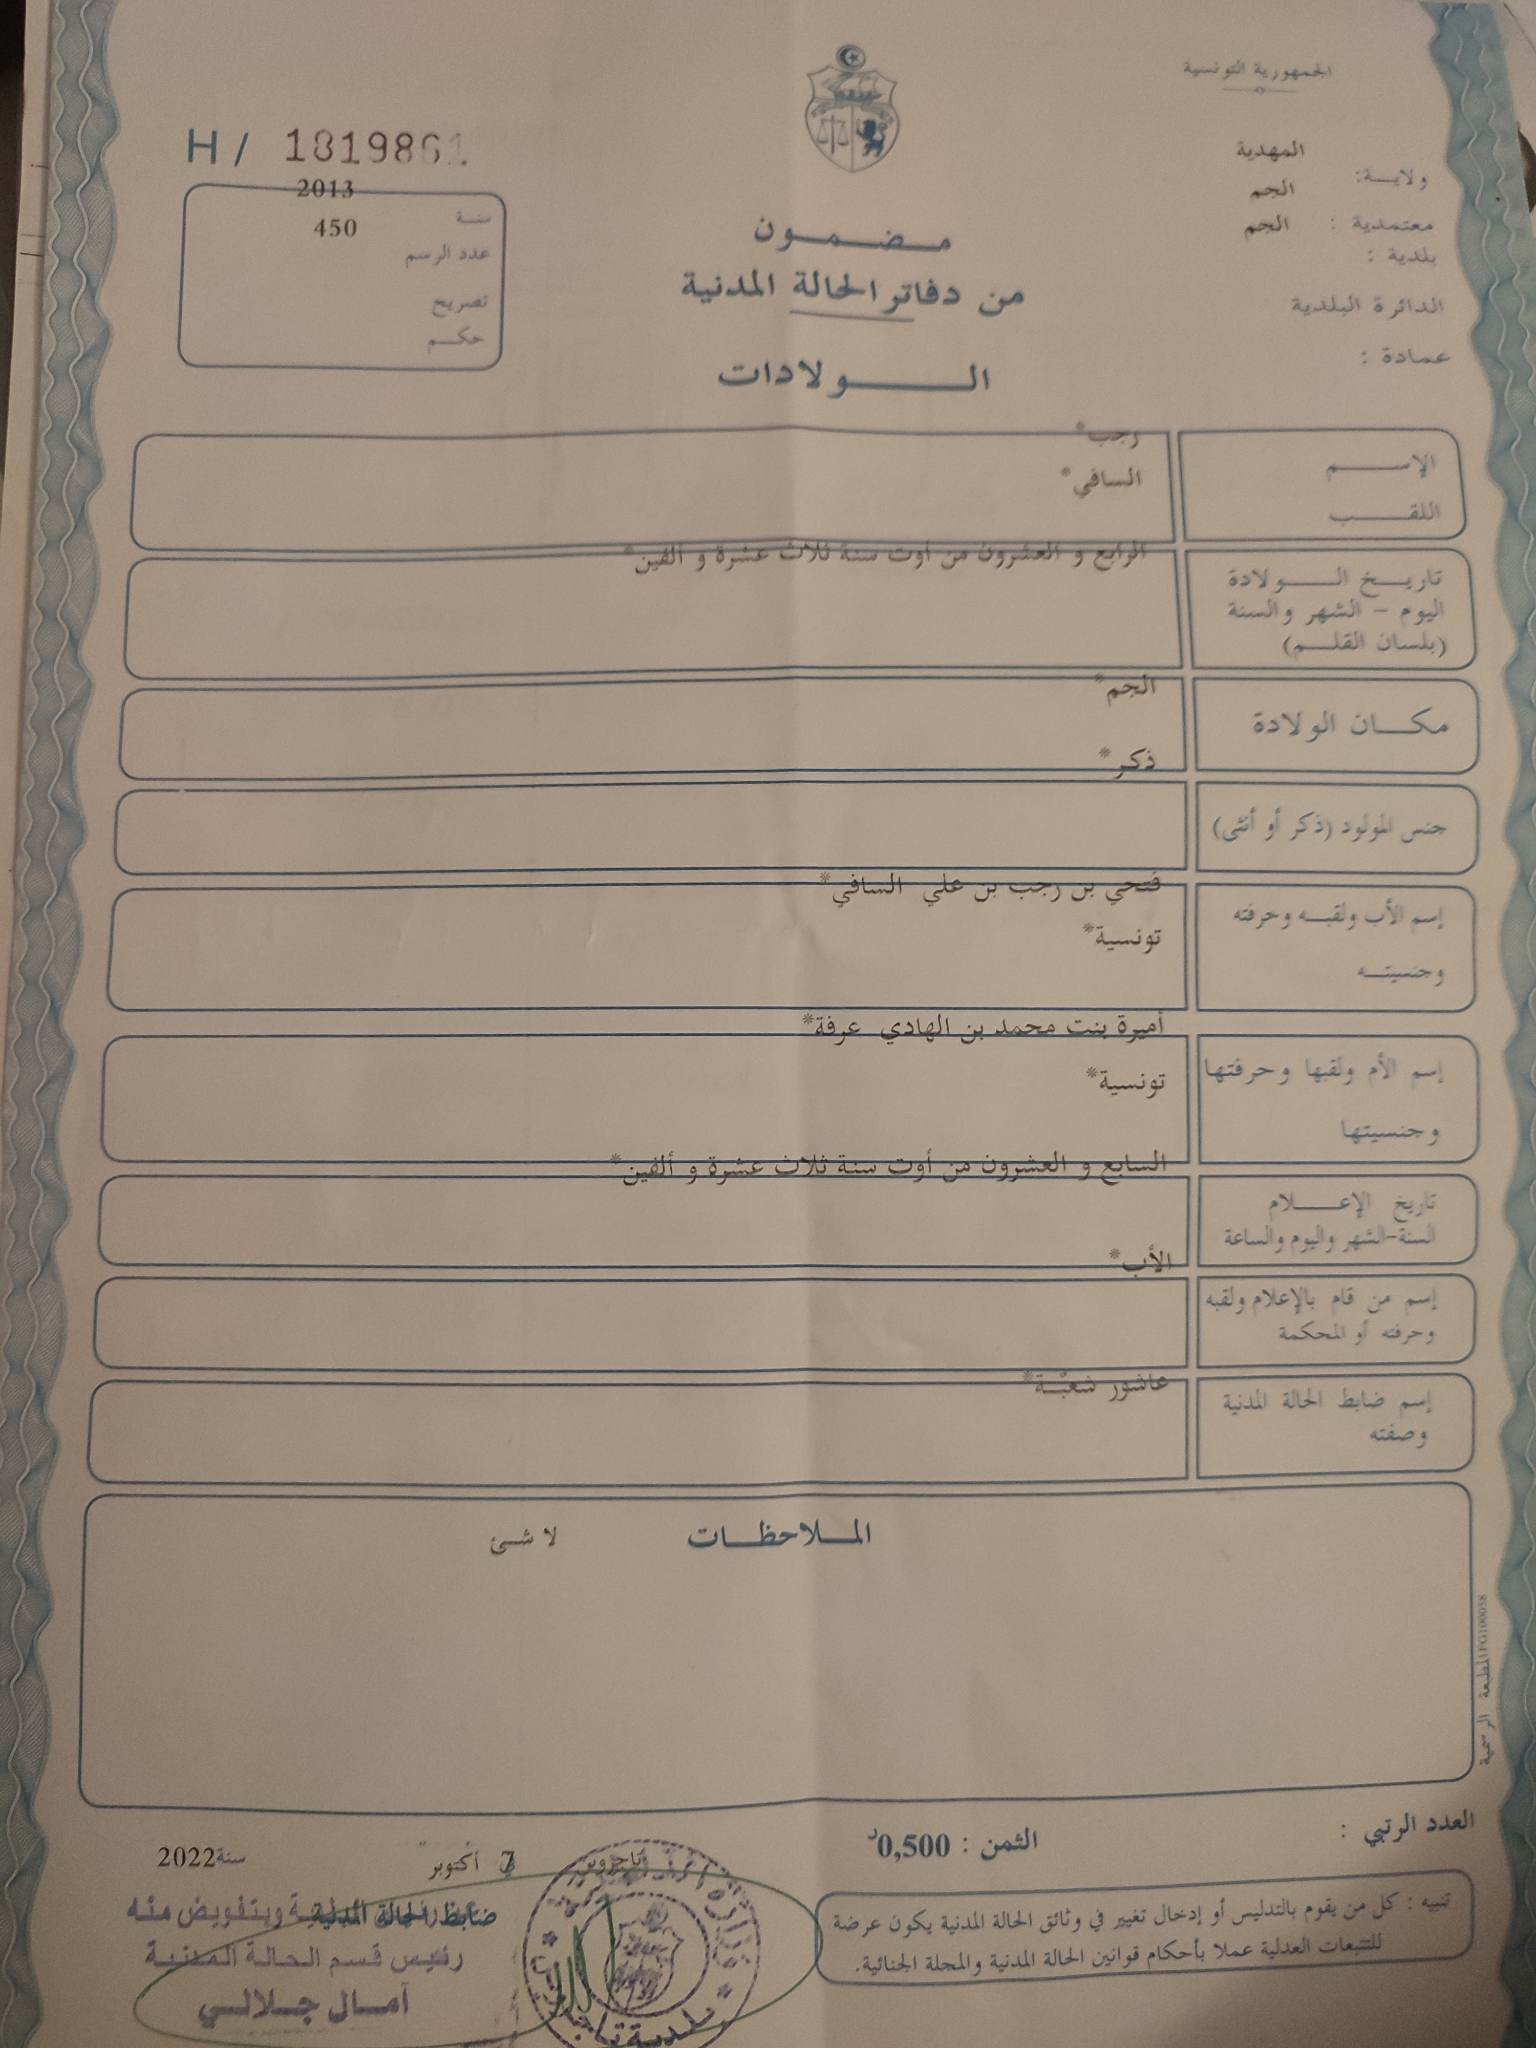 الجمهورية التونسية
المهدية
ولايـــة:
الجم
معتمدية :
الجم
بلدية :
الدائرة البلدية
عمادة :
H / 1819861
2013
سنـة
450
عدد الرسم
تصريح
حكـــم
مـــضـــمـــون
من دفاتر الحالة المدنية
الـــــولادات
الإســـــم
رجب*
اللقـــب
السافي*
تاريـــخ الـــــولادة
اليوم – الشهر والسنة
(بلسان القلـــم)
الرابع و العشرون من أوت سنة ثلاث عشرة و ألفين*
مكـــان الولادة
الجم*
ذكر*
جنس المولود (ذكر أو أنثى)
إسم الأب ولقبـــه وحرفته
وجنسيتـــه
فتحي بن رجب بن علي السافي*
تونسية*
إسم الأم ولقبها وحرفتها
وجنسيتها
أميرة بنت محمد بن الهادي عرفة*
تونسية*
تاريخ الإعـــــلام
السنة-الشهر واليوم والساعة
السابع و العشرون من أوت سنة ثلاث عشرة و ألفين*
إسم من قام بالإعلام ولقبه
وحرفته أو المحكمة
الأب*
إسم ضابط الحالة المدنية
وصفته
عاشور شعبّـة*
الملاحظـــات
لا شئ
المطبعة الرسمية
العدد الرتبي :
الثمن : 0,500د
تنبيه : كل من يقوم بالتدليس أو إدخال تغيير في وثائق الحالة المدنية يكون عرضة
للتتبعات العدلية عملا بأحكام قوانين الحالة المدنية والمجلة الجنائية.
تاجروين
7 أكتوبر
سنة 2022
ضابط الحالة المدنية
وبتفويض منه
رئيس قسم الحالة المدنية
آمـال جـلالـي